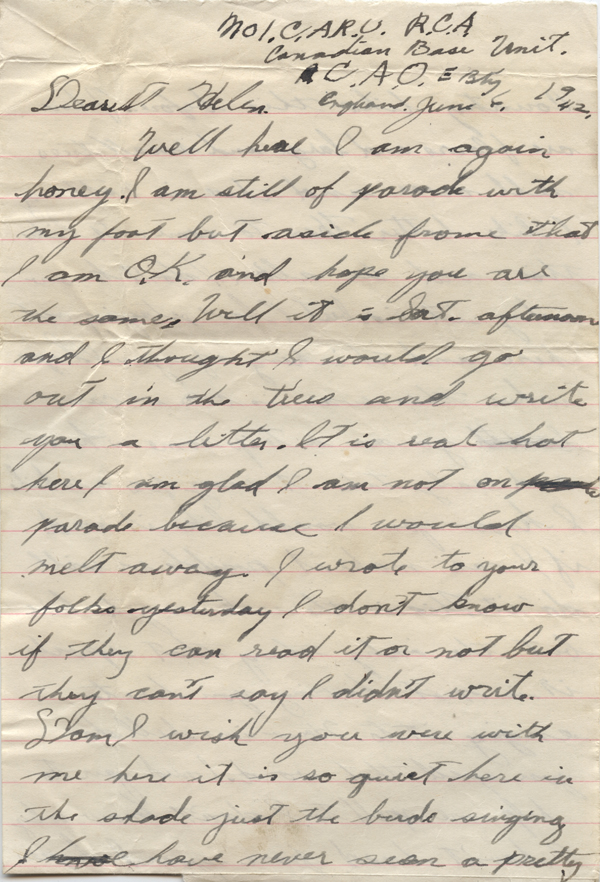 No 1. C. A.R.U. R.C.A
Canadian Base Unit.
C. A. O. = Bty
England. June 6. 1942.
Dearest Helen.
Well heal I am again
honey. I am still of parade with
my foot but aside frome that
I am O.K. and hope you are
the same. Well it is Sat. afternoon
and I thought I would go
out in the trees and write
you a letter. It is real hot
here I am glad I am not on
parade because I would
melt away. I wrote to your
folks yesterday I don't know
if they can read it or not but
they can't say I didn't write.
I wish you were with
me here it is so quiet here in
the shade just the birds singing
I have never seen a pretty